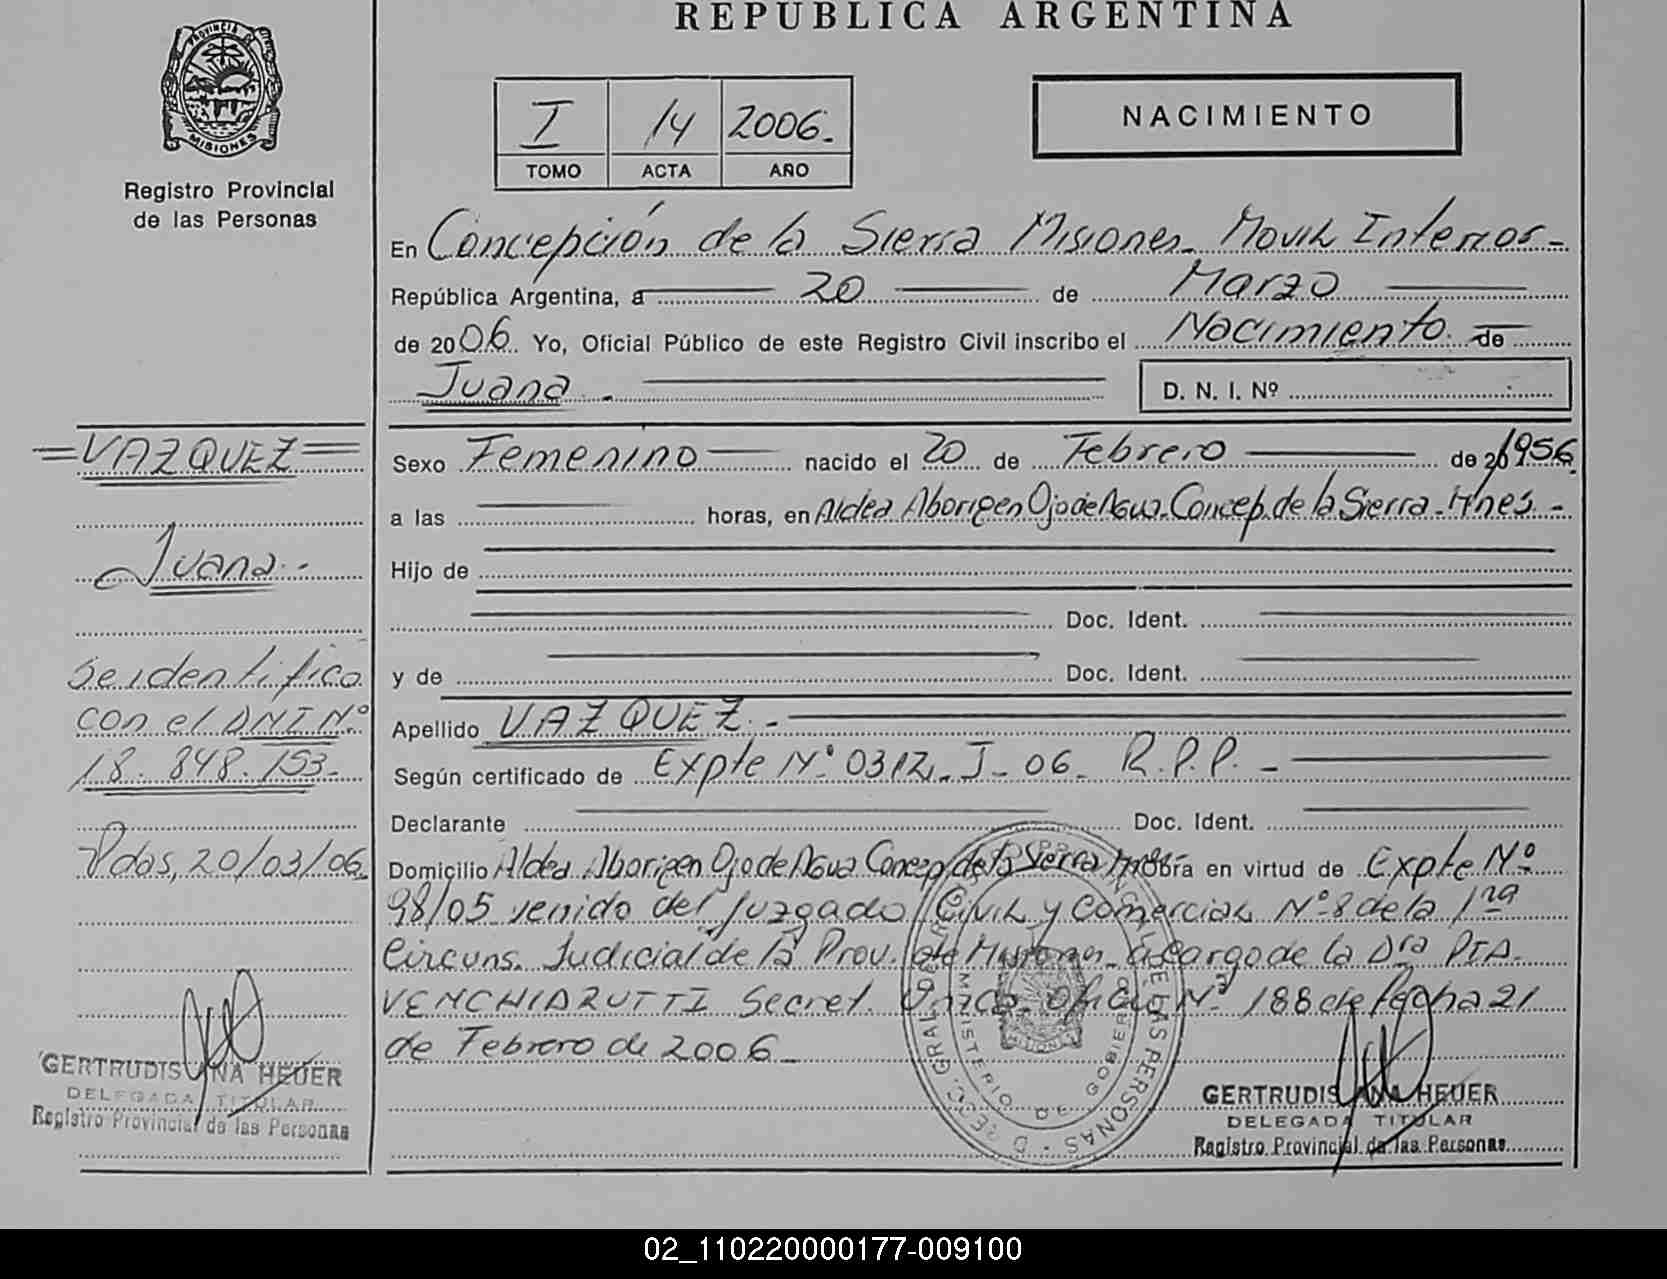 REPUBLICA ARGENTINA
PROVINCIA DE
MISIONES
Registro Provincial
de las Personas
I 14 2006.
TOMO ACTA AÑO
NACIMIENTO
En Concepción de la Sierra Misiones - Movil Interior -
República Argentina, a 20 de Marzo
de 2006. Yo, Oficial Público de este Registro Civil inscribo el Nacimiento de
Juana. -
D. N. I. Nº
=VAZQUEZ=
Juana.-
Se identificó
con el DNI Nº
18.848.153-
Pdas, 20/03/06
GERTRUDIS ANA HEUER
DELEGADA TITULAR
Registro Provincial de las Personas
Sexo Femenino nacido el 20 de Febrero de 1956.
a las horas, en Aldea Aborigen Ojo de Agua - Concep. de la Sierra - Mnes. -
Hijo de
Doc. Ident.
y de Doc. Ident.
Apellido VAZQUEZ.-
Según certificado de Expte Nº 0312 - J - 06 - R.P.P. -
Declarante Doc. Ident.
Domicilio Aldea Aborigen Ojo de Agua Concep de la Sierra Obra en virtud de Expte Nº
98/05 venido del Juzgado Civil y Comercial Nº 8 de la 1ra
Circuns. Judicial de la Prov. de Misiones a cargo de la Dra PIA
VENCHIARUTTI Secret. Unica Oficio Nº 188 de fecha 21
de Febrero de 2006 -
DIRECC. GRAL. DE REG. PROVINCIAL DE LAS PERSONAS
MINISTERIO DE GOBIERNO
MISIONES
GERTRUDIS ANA HEUER
DELEGADA TITULAR
Registro Provincial de las Personas
02_110220000177-009100